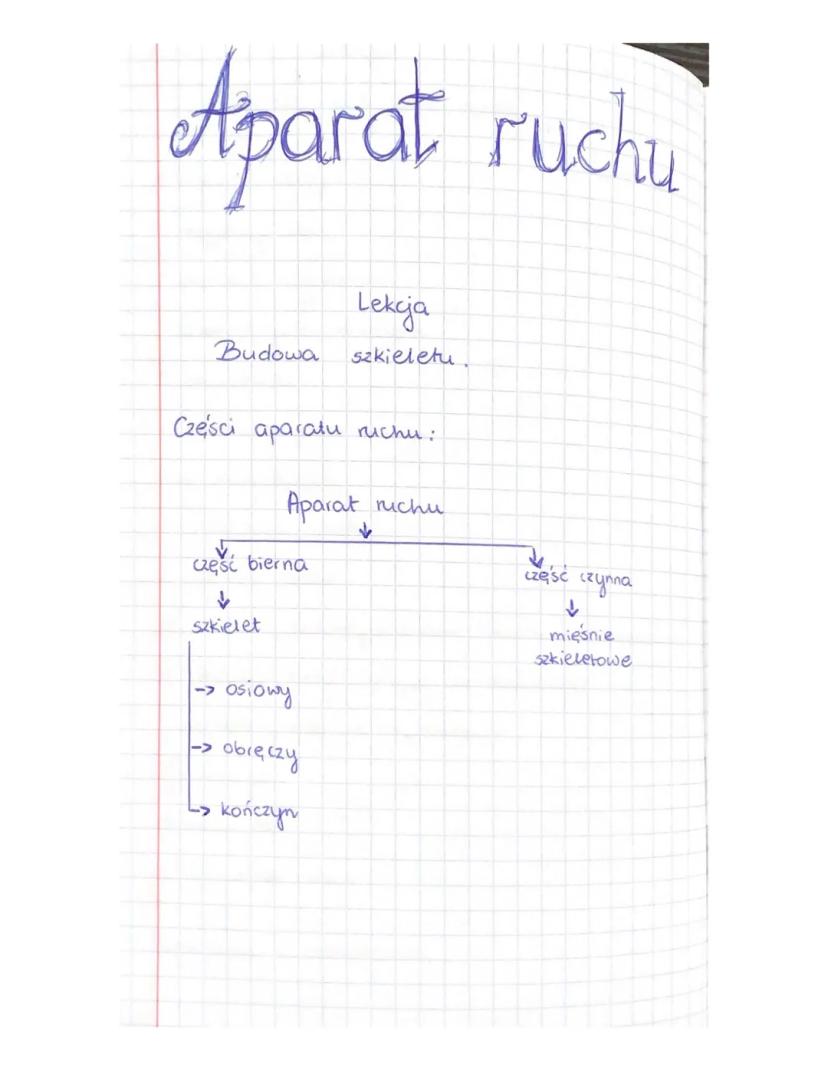 Aparat ruchu
Lekcja
Budowa szkieletu.
Części aparatu ruchu:
Aparat ruchu
część bierna
część czynna
szkielet
mięśnie
szkieletowe
-> osiowy
-> obręczy
-> kończyn